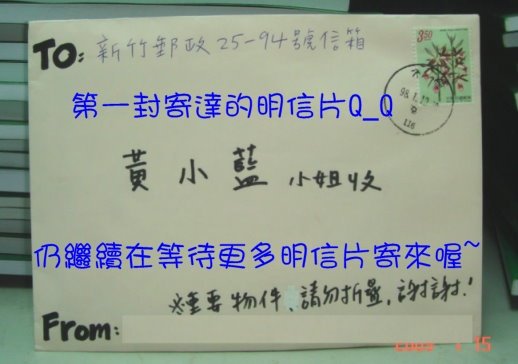 TO: 新竹郵政25-94號信箱
3.50
98.1.12
116
第一封寄達的明信片Q_Q
黃小藍 小姐收
仍繼續在等待更多明信片寄來喔~
※重要物件,請勿折疊,謝謝!
From:
15